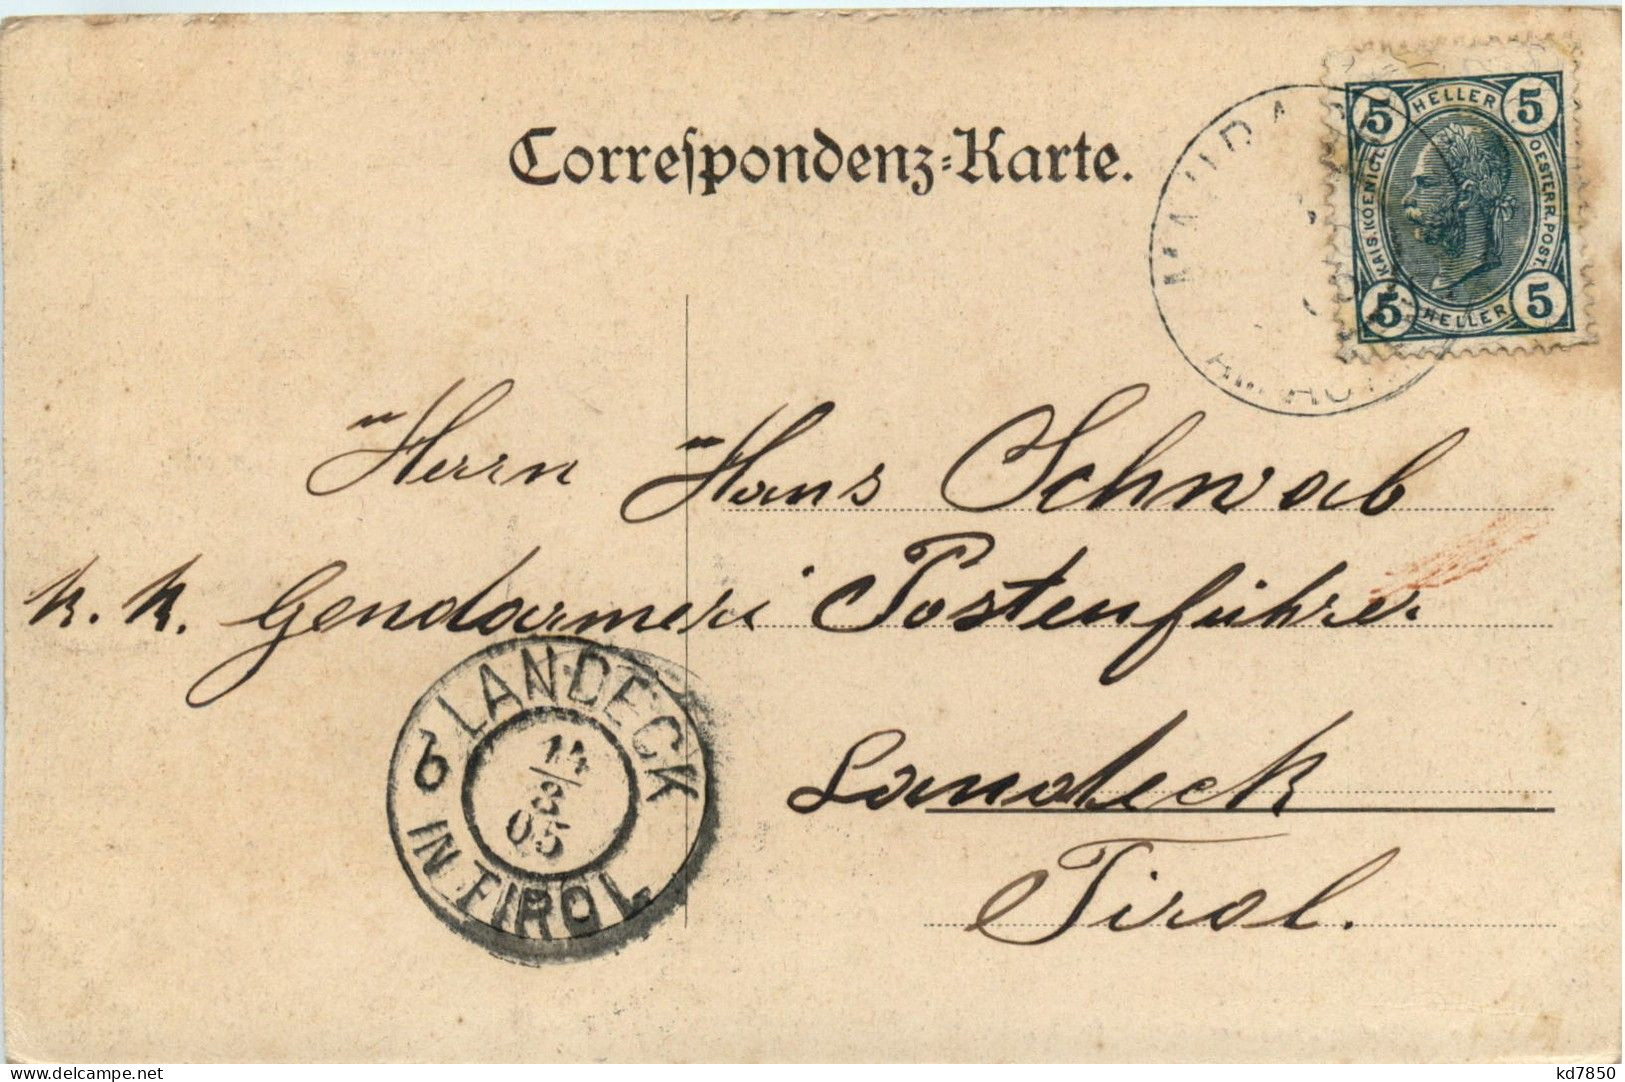 Correſpondenz-Karte.
5 HELLER 5
KAIS. KOENIGL. OESTERR. POST.
5 HELLER 5
Herrn Hans Schwab
k. k. Gendarmeri Postenführer
LANDECK
6
14
8
05
IN TIROL
Landeck
Tirol.
delcampe.net
kd7850